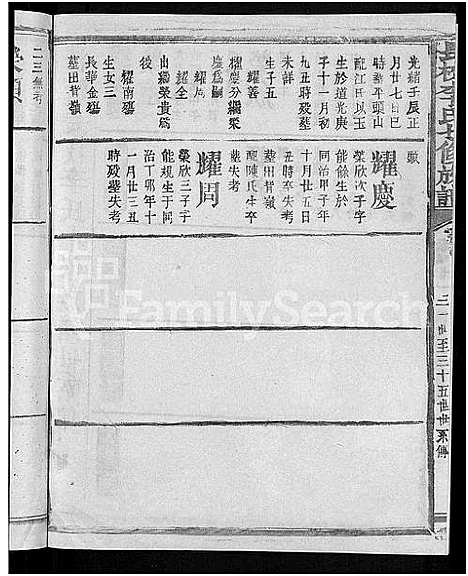 長橋李氏七修族譜
至三十五世世系傳
光緒壬辰正
月廿七日巳
時葬平頭山
龍江田以玉
生於道光庚
子十一月初
九丑時歿墓
未詳
生子五
耀善
耀慶分繼榮
慶爲嗣
耀周
耀全
山繼榮貴爲
後
耀南殤
生女三
長華金殤
墓田背嶺
歐
耀慶
榮欣次子字
能餘生於
同治甲子年
十月廿五日
丑時卒失考
墓田背嶺
陳氏生卒
墓失考
耀周
榮欣三子字
能規生于同
治丁卯年十
一月廿三丑
時歿墓失考
二三無考
FamilySearch